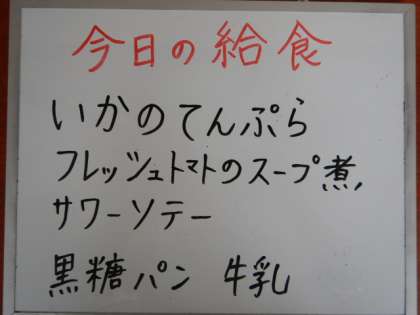 今日の給食
いかのてんぷら
フレッシュトマトのスープ煮
サワーソテー
黒糖パン 牛乳